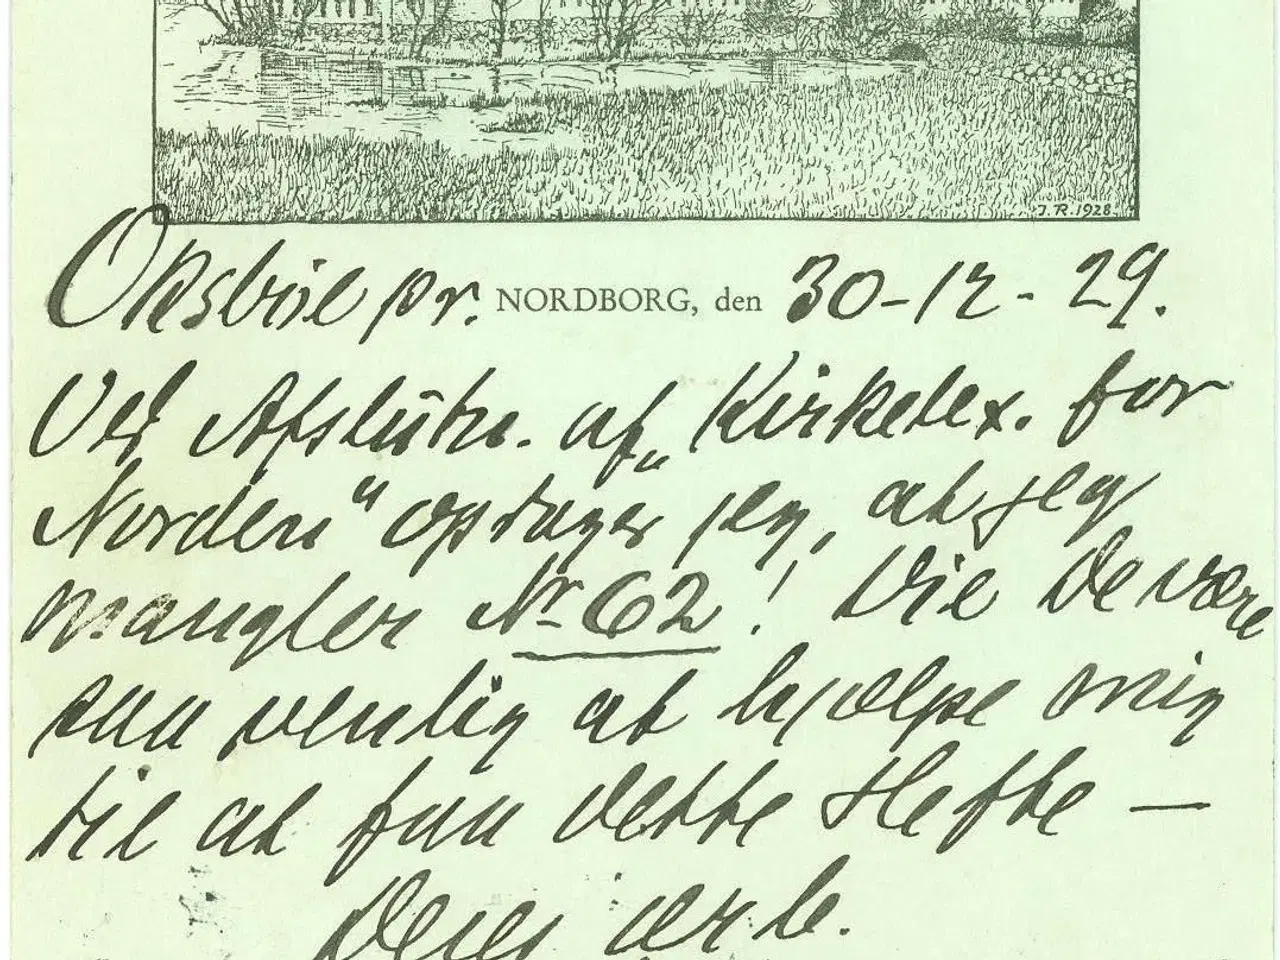 J.R. 1928
Oksbøl pr. NORDBORG, den 30-12-29.
Ved Afslutn. af „Kirkelex. for
Norden“ opdager jeg, at jeg
mangler Nr 62! Vil De være
saa venlig at hjælpe mig
til at faa dette Hefte —
Deres ærb.